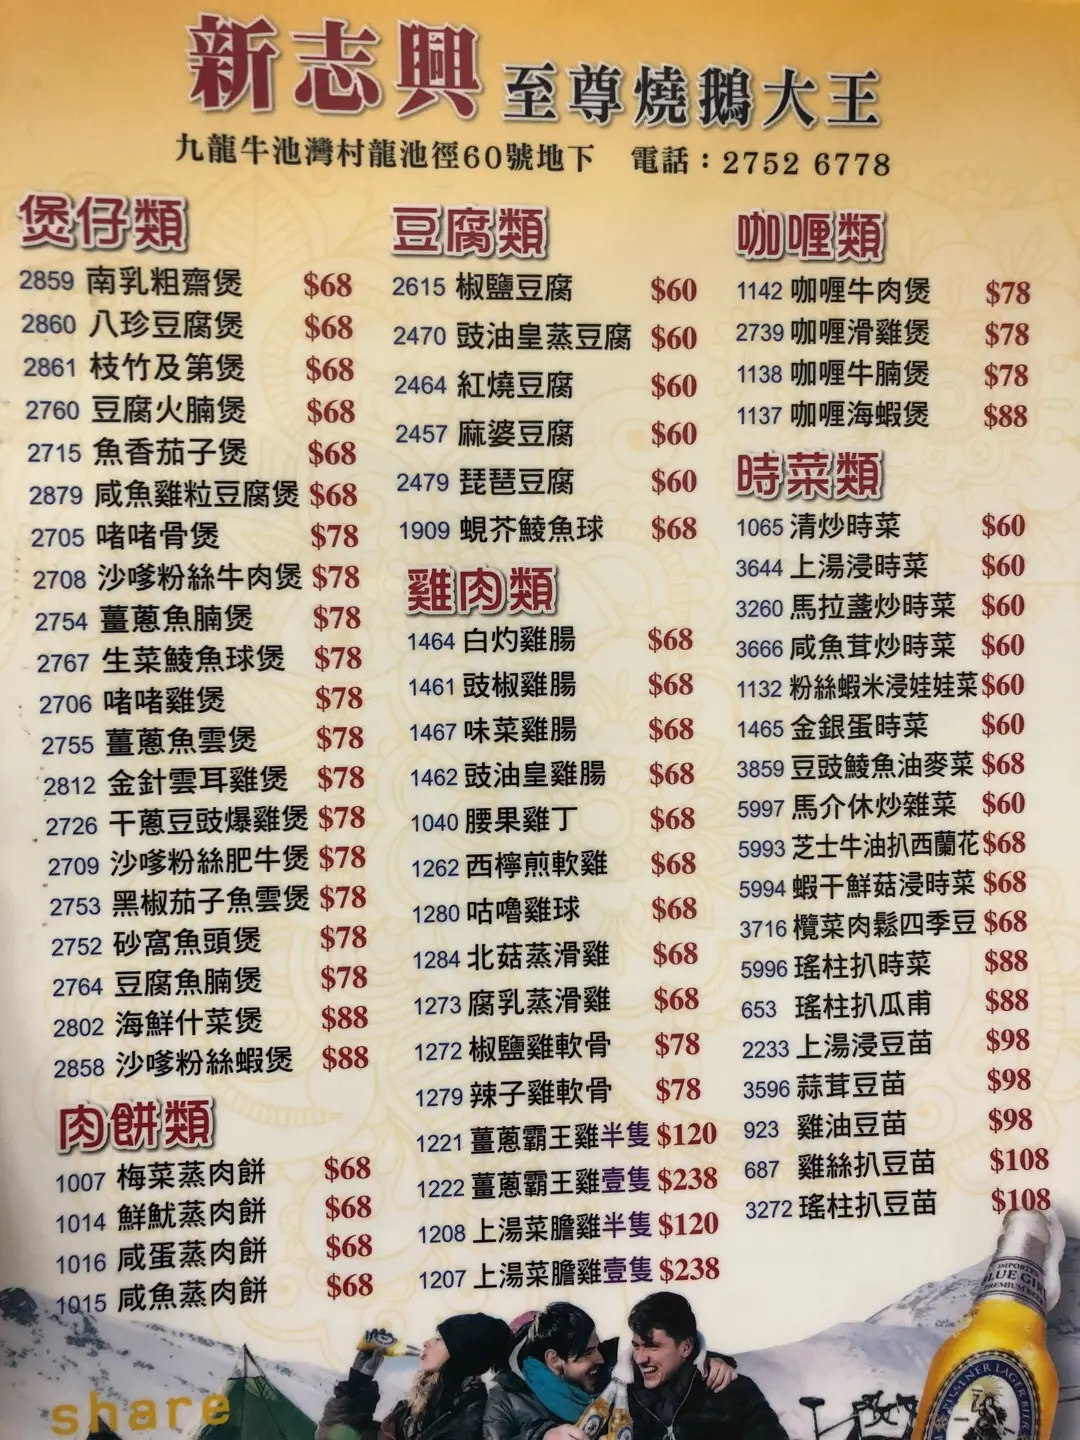 新志興 至尊燒鵝大王
九龍牛池灣村龍池徑60號地下 電話：2752 6778
煲仔類
2859 南乳粗齋煲 $68
2860 八珍豆腐煲 $68
2861 枝竹及第煲 $68
2760 豆腐火腩煲 $68
2715 魚香茄子煲 $68
2879 咸魚雞粒豆腐煲 $68
2705 啫啫骨煲 $78
2708 沙嗲粉絲牛肉煲 $78
2754 薑蔥魚腩煲 $78
2767 生菜鯪魚球煲 $78
2706 啫啫雞煲 $78
2755 薑蔥魚雲煲 $78
2812 金針雲耳雞煲 $78
2726 干蔥豆豉爆雞煲 $78
2709 沙嗲粉絲肥牛煲 $78
2753 黑椒茄子魚雲煲 $78
2752 砂窩魚頭煲 $78
2764 豆腐魚腩煲 $78
2802 海鮮什菜煲 $88
2858 沙嗲粉絲蝦煲 $88
肉餅類
1007 梅菜蒸肉餅 $68
1014 鮮魷蒸肉餅 $68
1016 咸蛋蒸肉餅 $68
1015 咸魚蒸肉餅 $68
豆腐類
2615 椒鹽豆腐 $60
2470 豉油皇蒸豆腐 $60
2464 紅燒豆腐 $60
2457 麻婆豆腐 $60
2479 琵琶豆腐 $60
1909 蜆芥鯪魚球 $68
雞肉類
1464 白灼雞腸 $68
1461 豉椒雞腸 $68
1467 味菜雞腸 $68
1462 豉油皇雞腸 $68
1040 腰果雞丁 $68
1262 西檸煎軟雞 $68
1280 咕嚕雞球 $68
1284 北菇蒸滑雞 $68
1273 腐乳蒸滑雞 $68
1272 椒鹽雞軟骨 $78
1279 辣子雞軟骨 $78
1221 薑蔥霸王雞半隻 $120
1222 薑蔥霸王雞壹隻 $238
1208 上湯菜膽雞半隻 $120
1207 上湯菜膽雞壹隻 $238
咖喱類
1142 咖喱牛肉煲 $78
2739 咖喱滑雞煲 $78
1138 咖喱牛腩煲 $78
1137 咖喱海蝦煲 $88
時菜類
1065 清炒時菜 $60
3644 上湯浸時菜 $60
3260 馬拉盞炒時菜 $60
3666 咸魚茸炒時菜 $60
1132 粉絲蝦米浸娃娃菜 $60
1465 金銀蛋時菜 $60
3859 豆豉鯪魚油麥菜 $68
5997 馬介休炒雜菜 $60
5993 芝士牛油扒西蘭花 $68
5994 蝦干鮮菇浸時菜 $68
3716 欖菜肉鬆四季豆 $68
5996 瑤柱扒時菜 $88
653 瑤柱扒瓜甫 $88
2233 上湯浸豆苗 $98
3596 蒜茸豆苗 $98
923 雞油豆苗 $98
687 雞絲扒豆苗 $108
3272 瑤柱扒豆苗 $108
share
IMPORTED
BLUE GIRL
PREMIUM BEER
PILSENER LAGER BIER